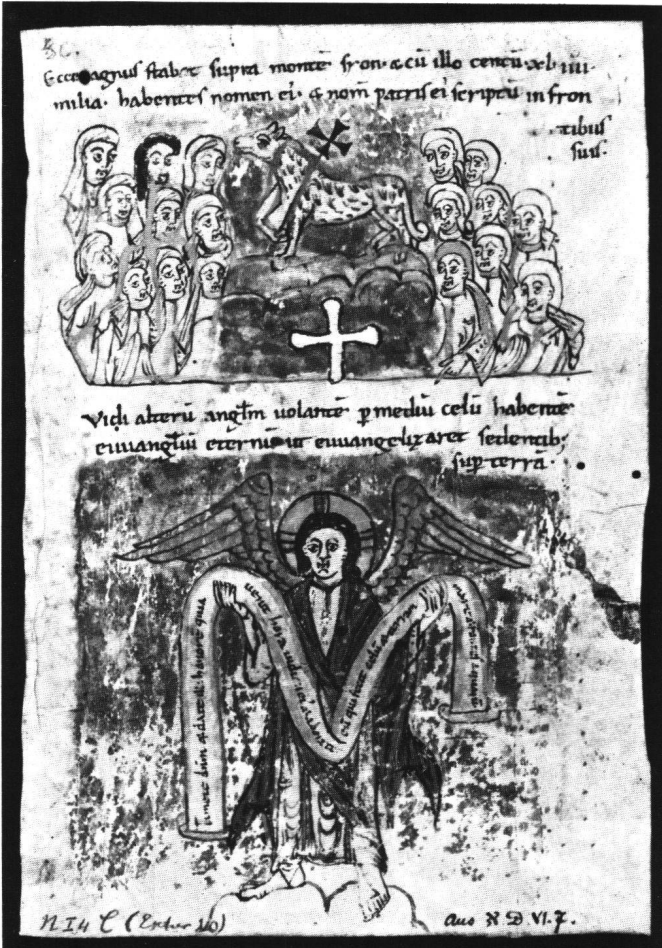 Ecce agnus stabat supra montē syon· ⁊ cū illo centū xl iiii·
milia· habentes nomen ei· & nom̄ patris ei scriptū in fron
tibus
suis·
Vidi alterū angl̄m uolantē p mediū celū habentē
euuangl̄iū eternū ut euuangelizaret sedentib;
sup terrā·
timete dn̄m & date illi honorē quia
uenit hora
N I 4 C (
aus N D. VI. 7.